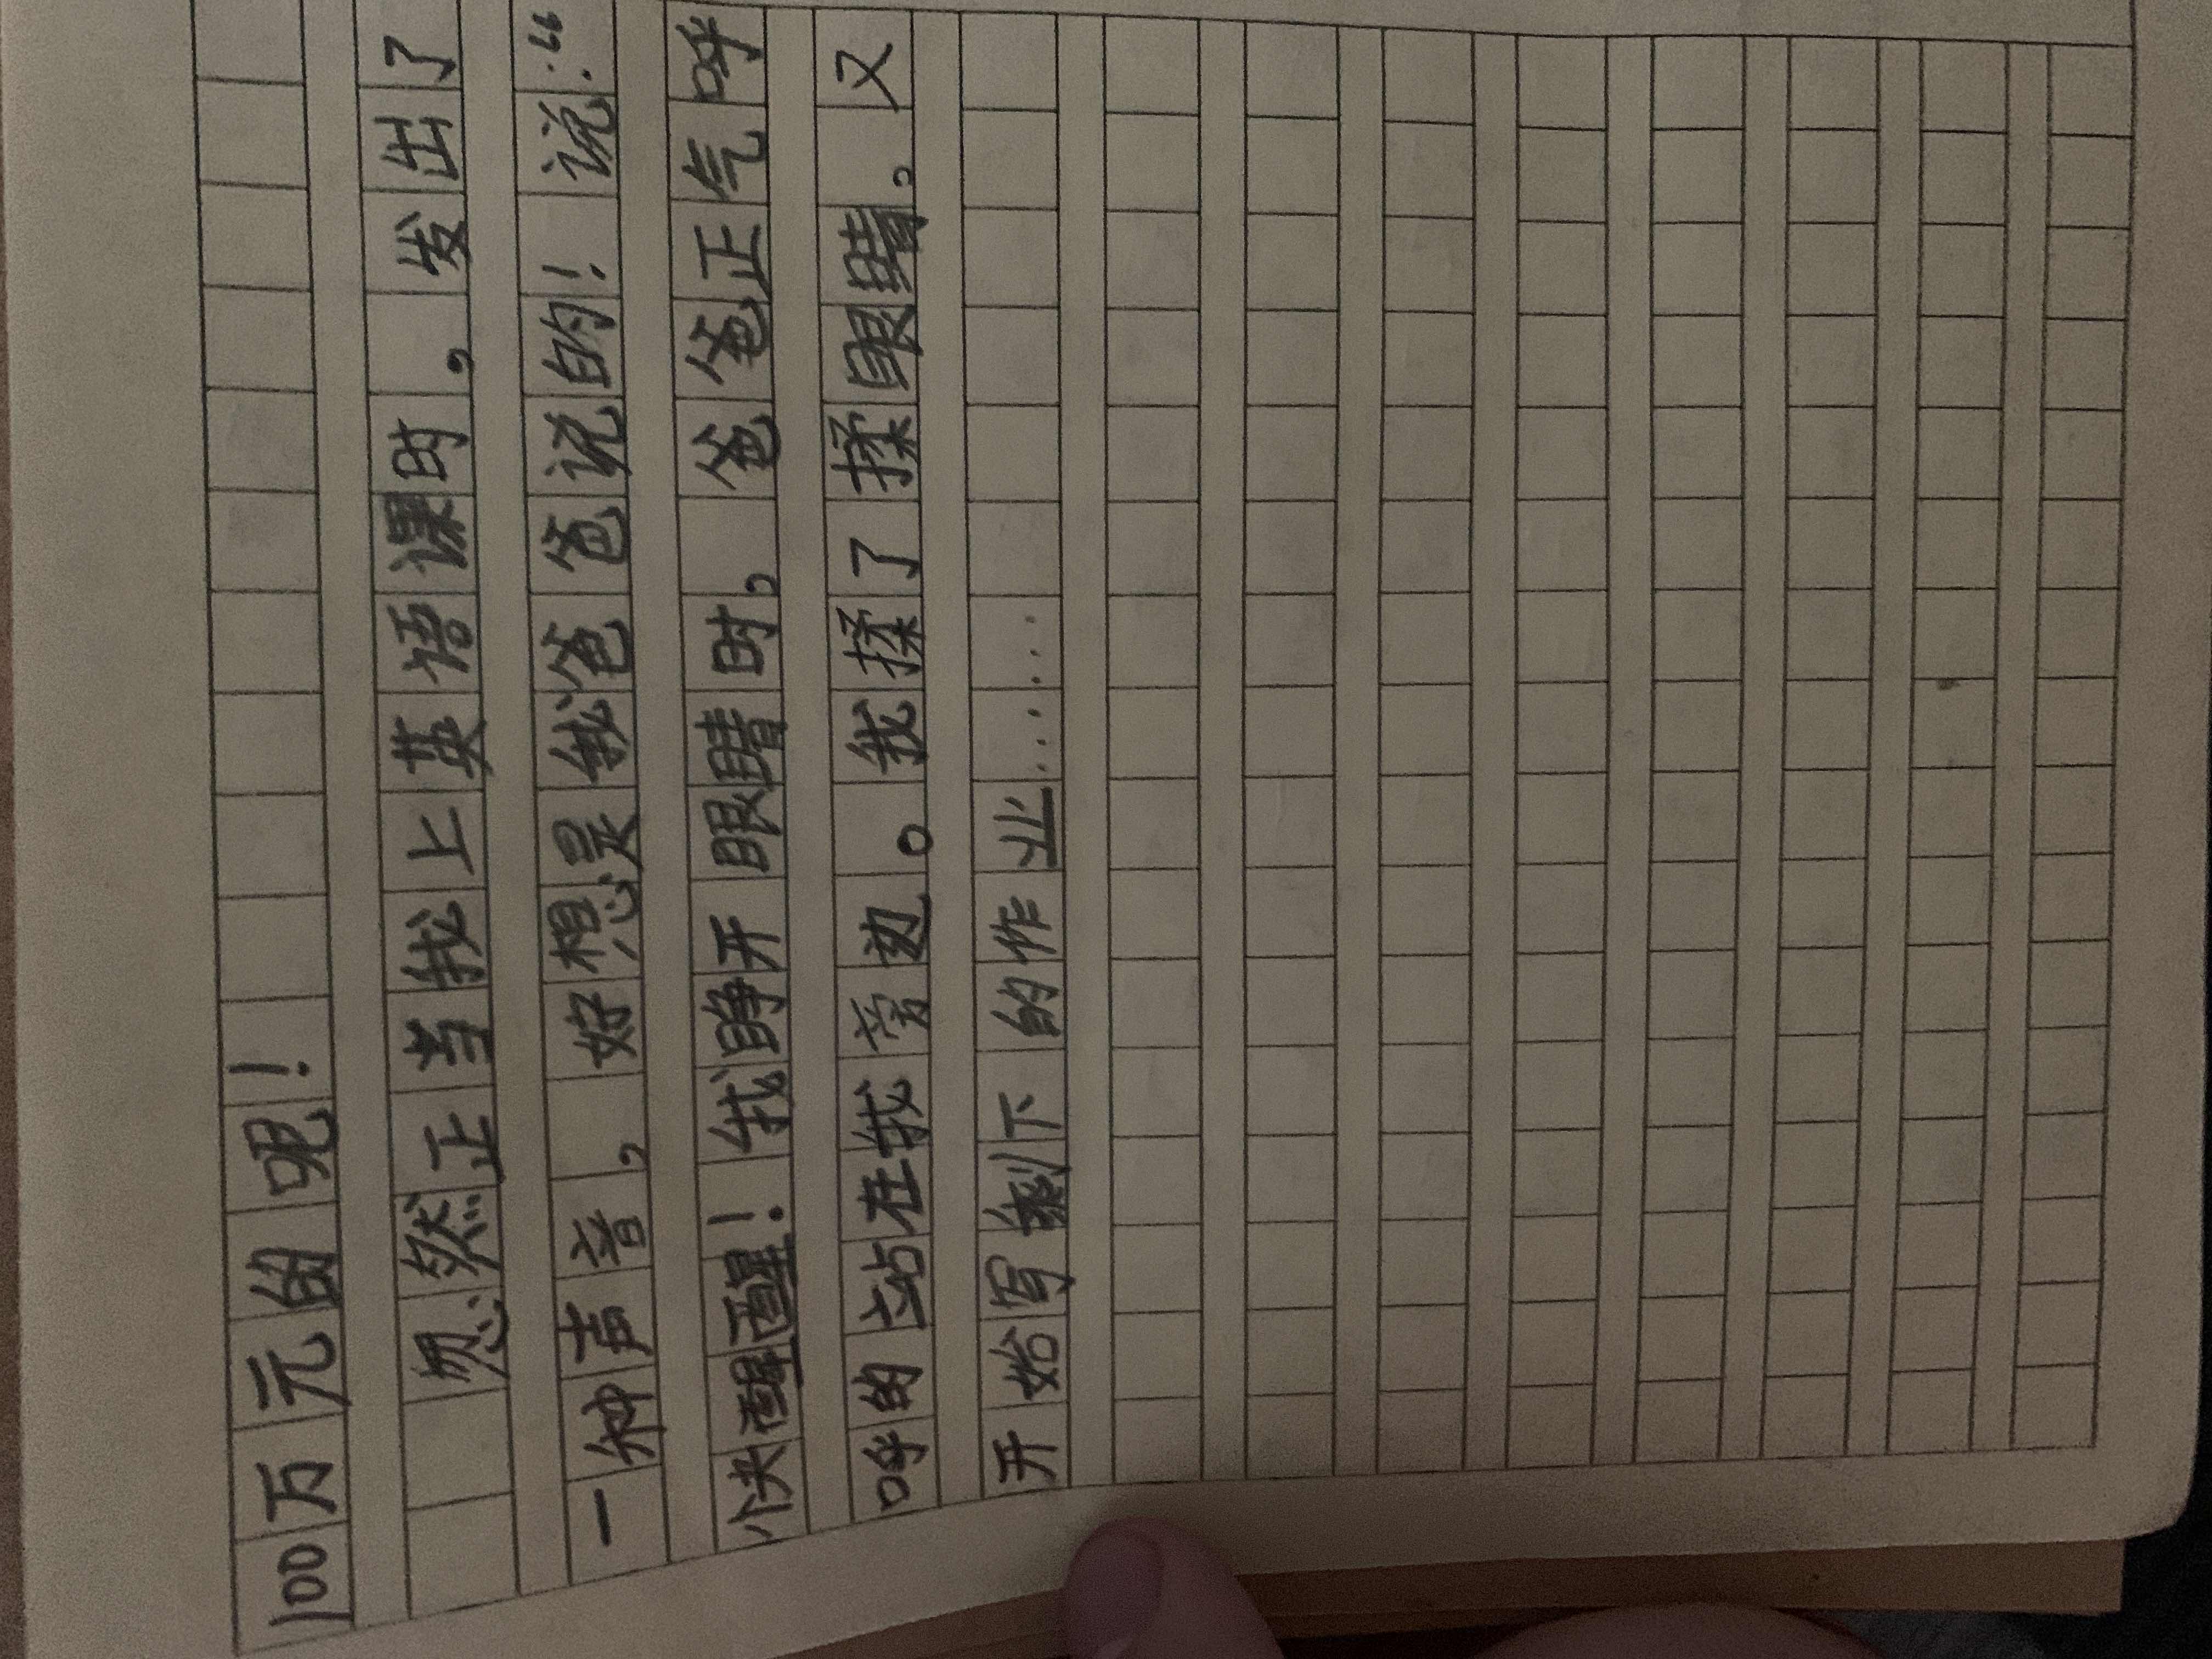 100万元的呢！
忽然正当我上英语课时，发出了
一种声音，好想是我爸爸说的！说：“
快醒醒！我睁开眼睛时，爸爸正气呼
呼的站在我旁边。我揉了揉眼睛。又
开始写剩下的作业……